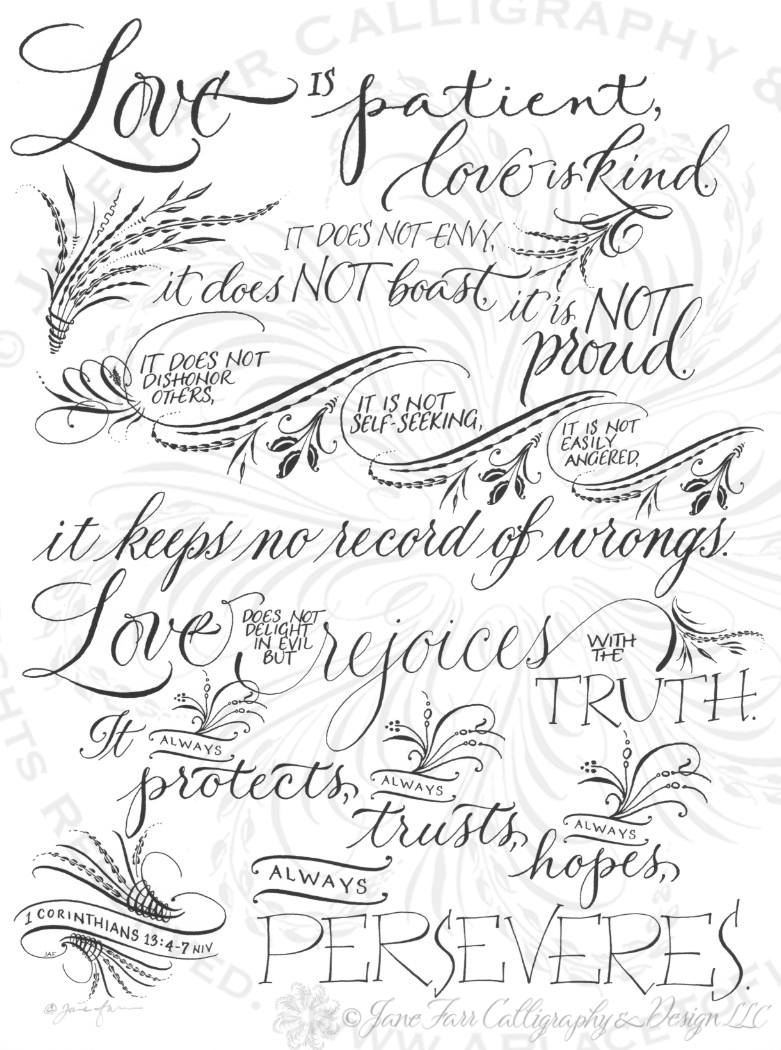 Love is patient,
love is kind.
IT DOES NOT ENVY,
it does NOT boast,
it is NOT
proud.
IT DOES NOT
DISHONOR
OTHERS,
IT IS NOT
SELF-SEEKING,
IT IS NOT
EASILY
ANGERED,
it keeps no record of wrongs.
Love
DOES NOT
DELIGHT
IN EVIL
BUT
rejoices
WITH
THE
TRUTH.
It
ALWAYS
protects,
ALWAYS
trusts,
ALWAYS
hopes,
ALWAYS
PERSEVERES.
1 CORINTHIANS 13:4-7 NIV
JAF
© Jane Farr
© Jane Farr Calligraphy & Design LLC